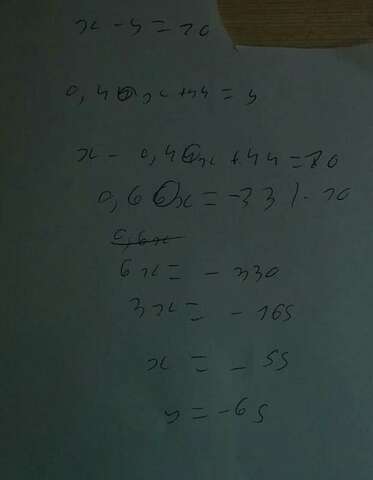 x - y = 10
0,40x + 44 = y
x - 0,40x + 44 = 10
0,60x = -33 | · 10
0,6x
6x = - 330
3x = - 165
x = - 55
y = -65